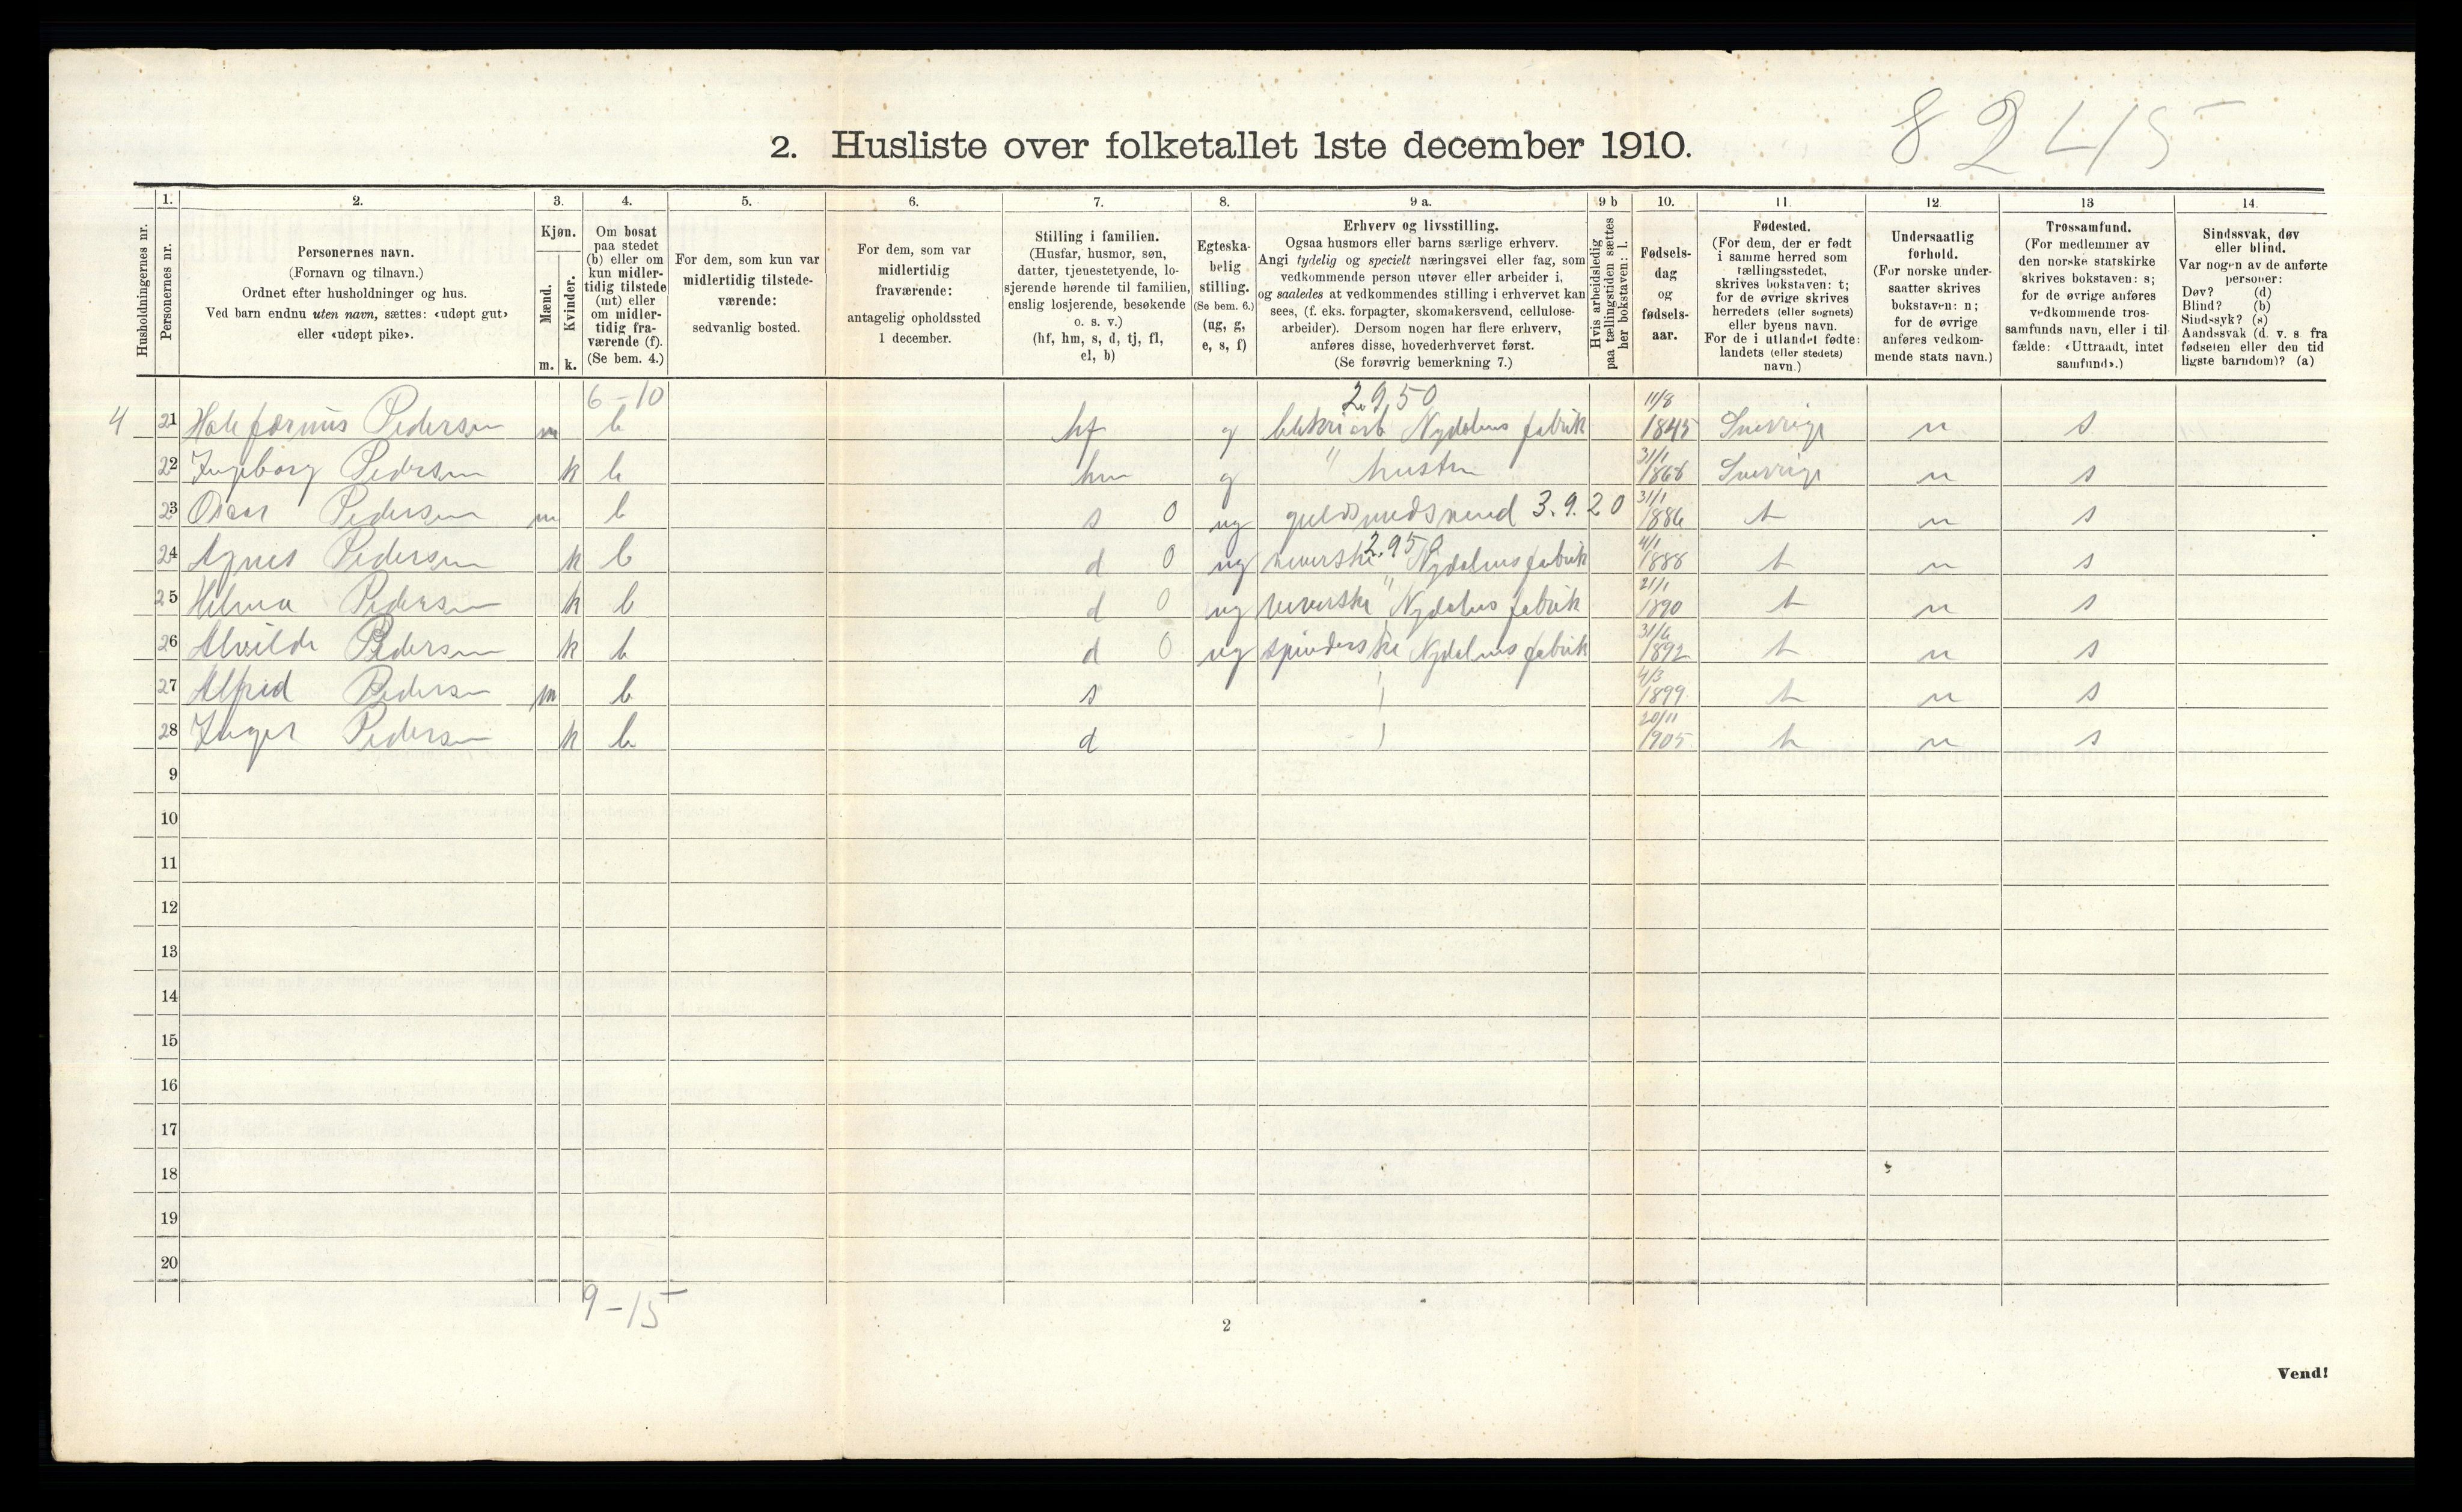 8 2 4/5
2. Husliste over folketallet 1ste december 1910.
Husholdningernes nr.
1. Personernes nr.
2. Personernes navn.
(Fornavn og tilnavn.)
Ordnet efter husholdninger og hus.
Ved barn endnu uten navn, sættes: «udøpt gut»
eller «udøpt pike».
3. Kjøn.
Mænd. m.
Kvinder. k.
4. Om bosat
paa stedet
(b) eller om
kun midler-
tidig tilstede
(mt) eller
om midler-
tidig fra-
værende (f).
(Se bem. 4.)
5. For dem, som kun var
midlertidig tilstede-
værende:
sedvanlig bosted.
6. For dem, som var
midlertidig
fraværende:
antagelig opholdssted
1 december.
7. Stilling i familien.
(Husfar, husmor, søn,
datter, tjenestetyende, lo-
sjerende hørende til familien,
enslig losjerende, besøkende
o. s. v.)
(hf, hm, s, d, tj, fl,
el, b)
8. Egteska-
belig
stilling.
(Se bem. 6.)
(ug, g,
e, s, f)
9 a. Erhverv og livsstilling.
Ogsaa husmors eller barns særlige erhverv.
Angi tydelig og specielt næringsvei eller fag, som
vedkommende person utøver eller arbeider i,
og saaledes at vedkommendes stilling i erhvervet kan
sees, (f. eks. forpagter, skomakersvend, cellulose-
arbeider). Dersom nogen har flere erhverv,
anføres disse, hovederhvervet først.
(Se forøvrig bemerkning 7.)
9 b Hvis arbeidsledig
paa tællingstiden sættes
her bokstaven: l.
10. Fødsels-
dag
og
fødsels-
aar.
11. Fødested.
(For dem, der er født
i samme herred som
tællingsstedet,
skrives bokstaven: t;
for de øvrige skrives
herredets (eller sognets)
eller byens navn.
For de i utlandet fødte:
landets (eller stedets)
navn.)
12 Undersaatlig
forhold.
(For norske under-
saatter skrives
bokstaven: n;
for de øvrige
anføres vedkom-
mende stats navn.)
13 Trossamfund.
(For medlemmer av
den norske statskirke
skrives bokstaven: s;
for de øvrige anføres
vedkommende tros-
samfunds navn, eller i til-
fælde: «Uttraadt, intet
samfund».)
14. Sindssvak, døv
eller blind.
Var nogen av de anførte
personer:
Døv? (d)
Blind? (b)
Sindssyk? (s)
Aandssvak (d. v. s. fra
fødselen eller den tid
ligste barndom)? (a)
6-10 2.9.50
4 21 Pedersen m b hf g Nydalens fabrik 11/8 1845 Sverrige n s
22 Ingeborg Pedersen k b hm g " hustru 31/1 1868 Sverrige n s
23 Oscar Pedersen m b s 0 ug guldsmedsvend 3.9.20 31/1 1886 t n s
24 Agnes Pedersen k b d 0 ug veverske 2.950 Nydalens fabrik 4/1 1888 t n s
25 Helma Pedersen k b d 0 ug veverske " Nydalens fabrik 21/1 1890 t n s
26 Alvilde Pedersen k b d 0 ug spinderske Nydalens fabrik 31/6 1892 t n s
27 Alfred Pedersen m b s 4/3 1899 t n s
28 Inger Pedersen k b d 20/11 1905 t n s
9
10
11
12
13
14
15
16
17
18
19
20
9-15
2
Vend!